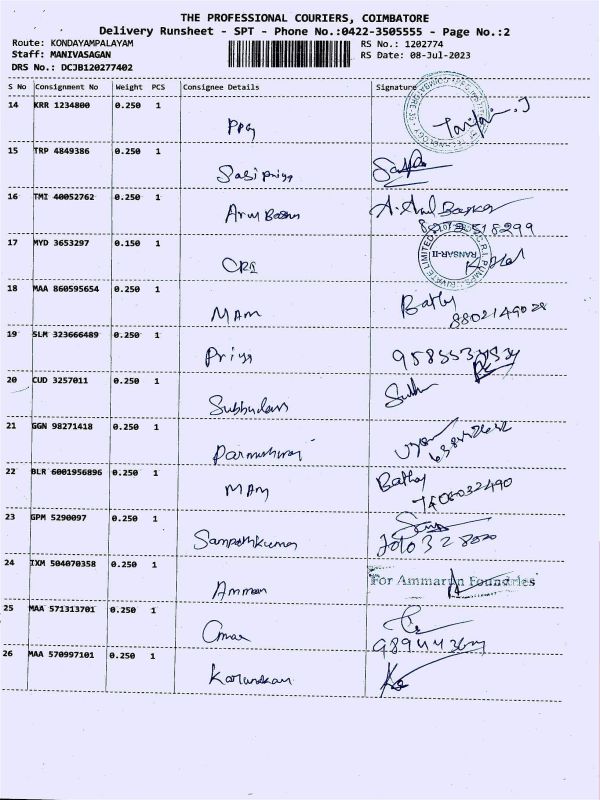 THE PROFESSIONAL COURIERS, COIMBATORE
Delivery Runsheet - SPT - Phone No.:0422-3505555 - Page No.:2
Route: KONDAYAMPALAYAM RS No.: 1202774
Staff: MANIVASAGAN RS Date: 08-Jul-2023
DRS No.: DCJB120277402
S No Consignment No Weight PCS Consignee Details Signature
14 KRR 1234800 0.250 1
PPG
15 TRP 4849386 0.250 1
Sasi priya
16 TMI 40052762 0.250 1
Arul Baskar A. Arul Baskar
17 MYD 3653297 0.150 1
RANSAR-II
CRI
18 MAA 860595654 0.250 1
MAM Bathy
8802149028
19 SLM 323666489 0.250 1
Priya
20 CUD 3257011 0.250 1
21 GGN 98271418 0.250 1
22 BLR 6001956896 0.250 1
MAM Bathy
23 GPM 5290097 0.250 1
Sampathkumar
24 IXM 504070358 0.250 1
For Ammarun Foundries
Amman
25 MAA 571313701 0.250 1
26 MAA 570997101 0.250 1